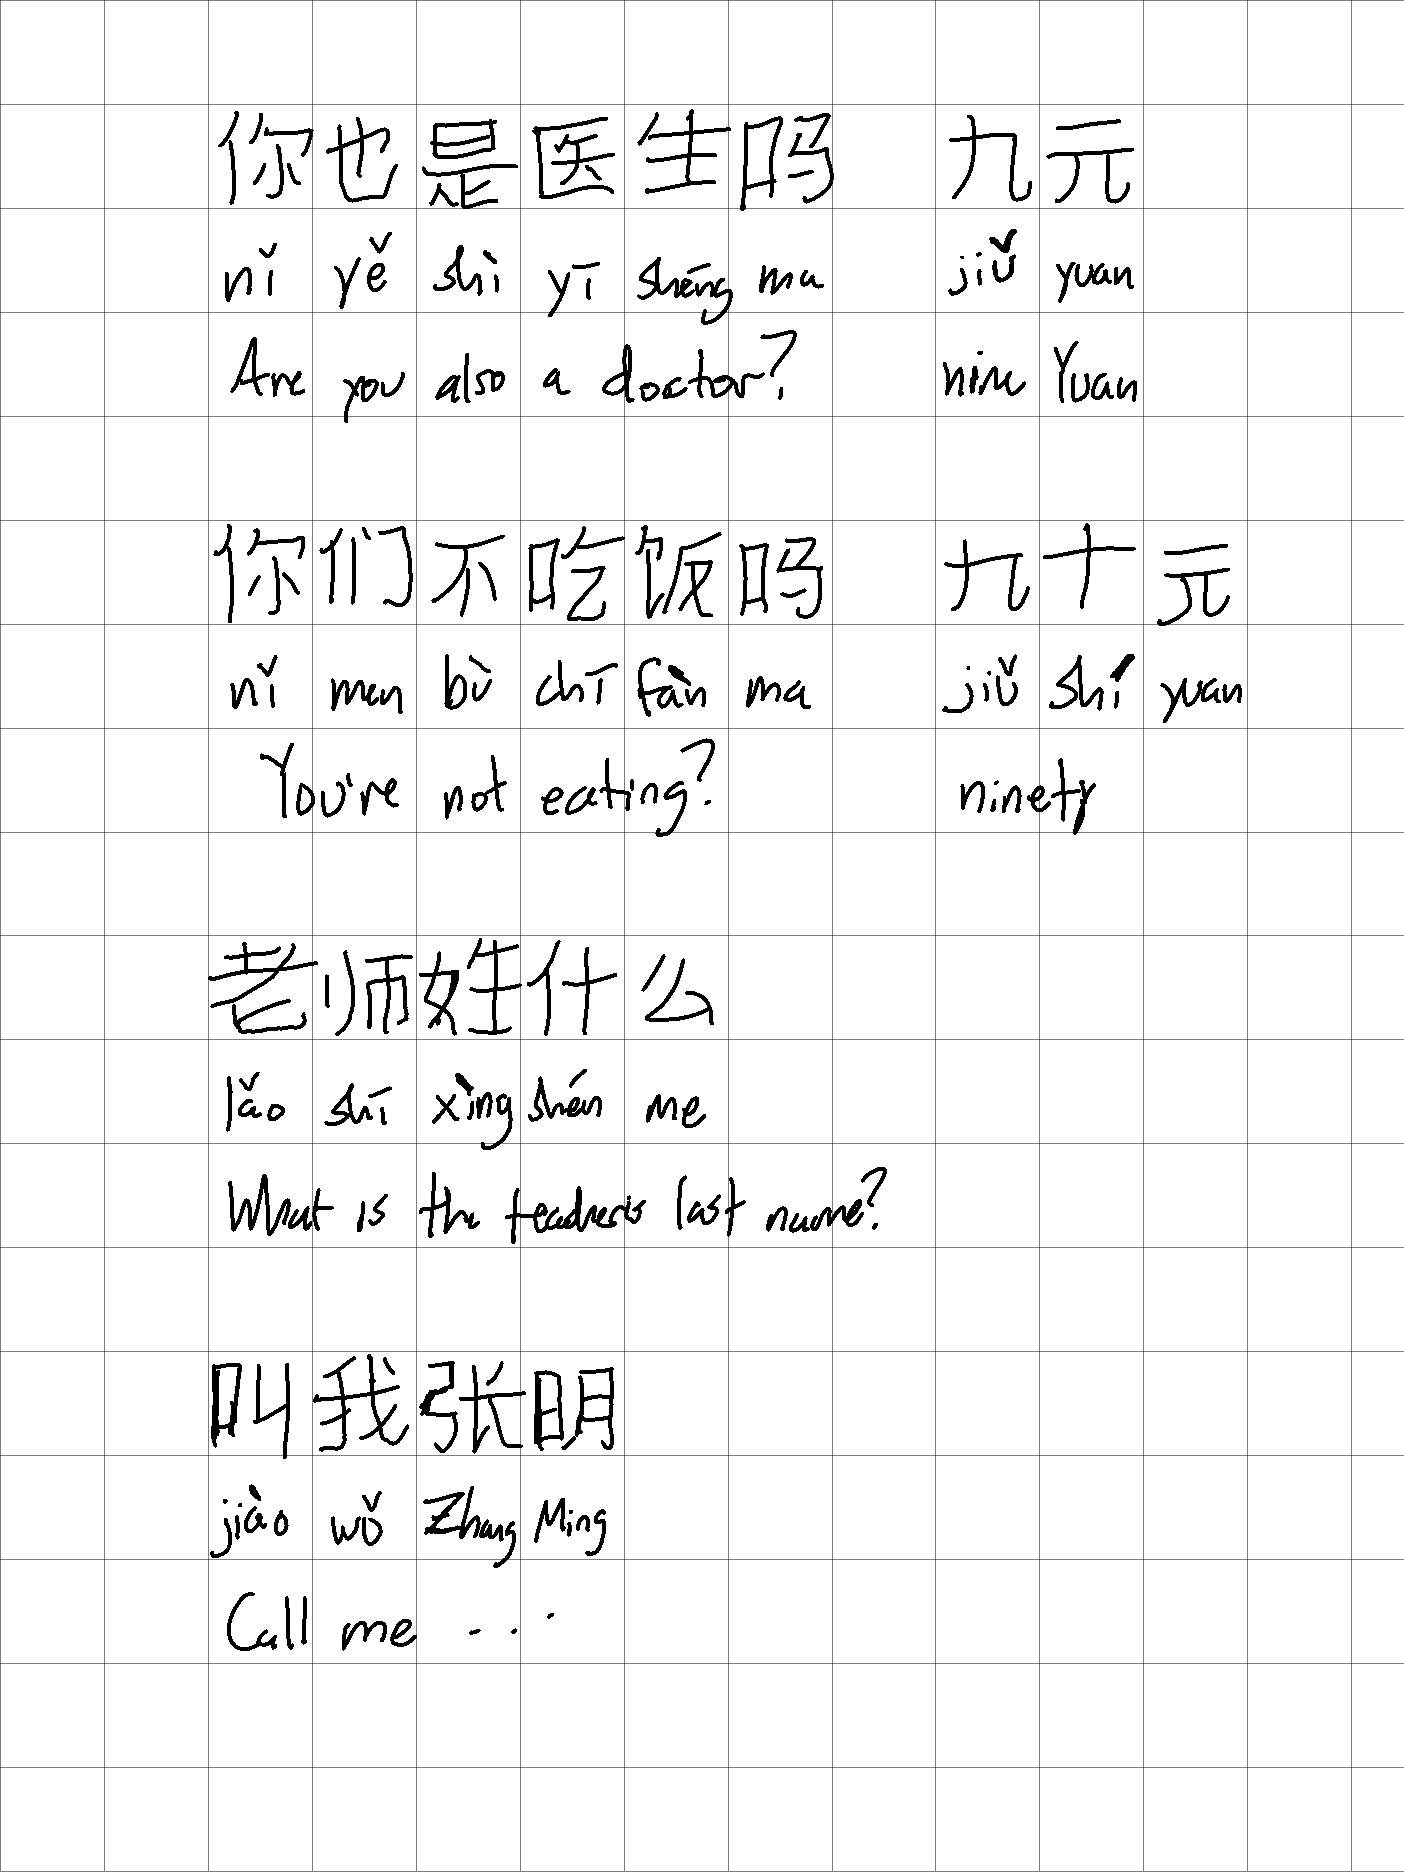 你也是医生吗 九元
nǐ yě shì yī shēng ma jiǔ yuan
Are you also a doctor? nine Yuan
你们不吃饭吗 九十元
nǐ men bù chī fàn ma jiǔ shí yuan
You're not eating? ninety
老师姓什么
lǎo shī xìng shén me
What is the teacher's last name?
叫我张明
jiào wǒ Zhang Ming
Call me ...